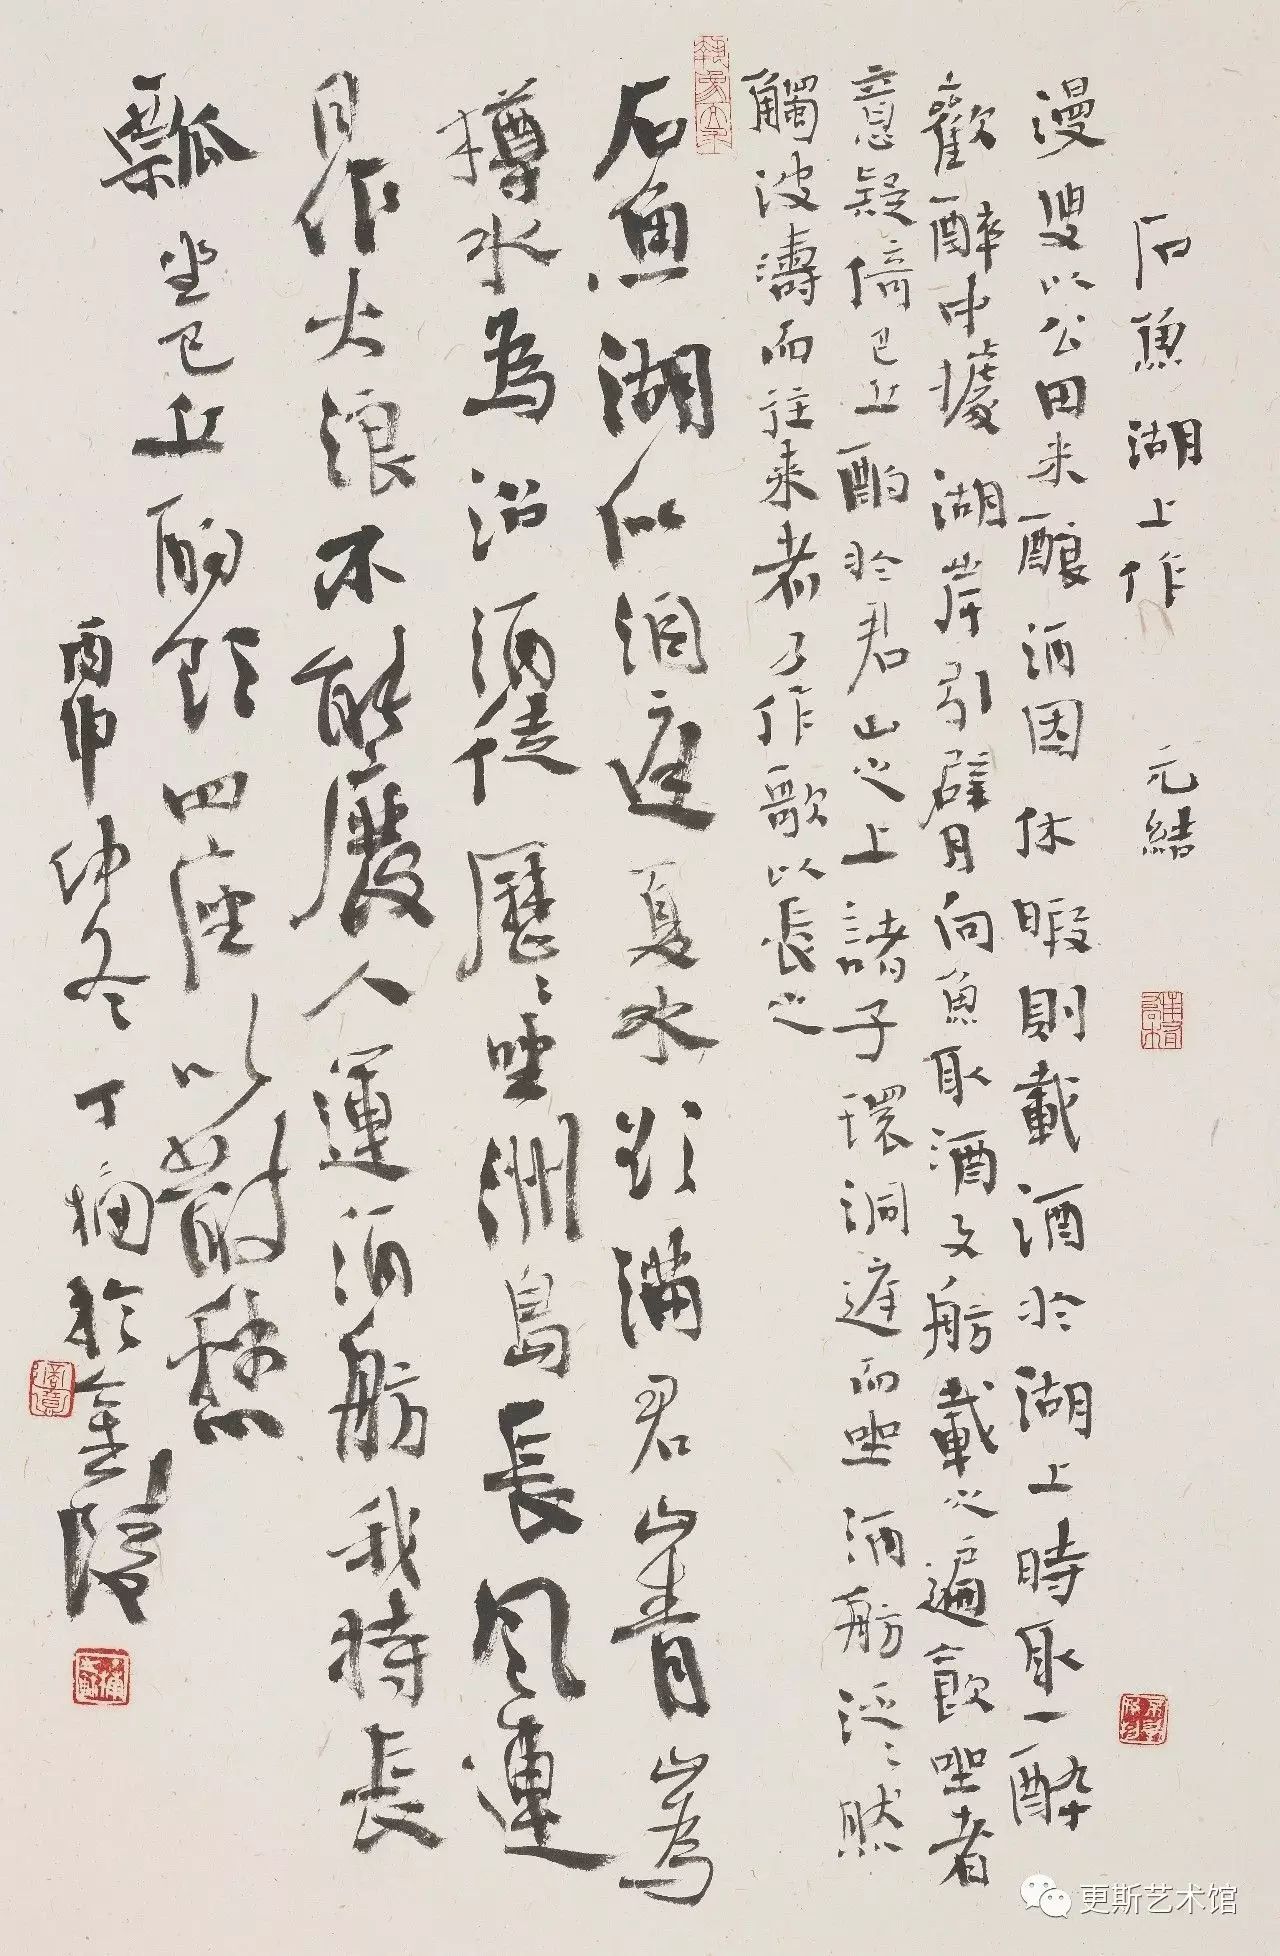 石魚湖上作 元結
漫叟以公田米釀酒因休暇則載酒於湖上時取一醉
歡醉中據湖岸引臂向魚取酒又舫載之遍飲坐者
意疑倚巴丘酌於君山之上諸子環洞庭而坐酒舫泛々然
觸波濤而往來者乃作歌以長之
石魚湖似洞庭夏水欲滿君山青山為
樽水為沼酒徒歷々坐洲島長風連
日作大浪不能廢人運酒舫我持長
瓢坐巴丘酌飲四座以散愁
丙申仲冬丁於金陵
更斯艺术馆